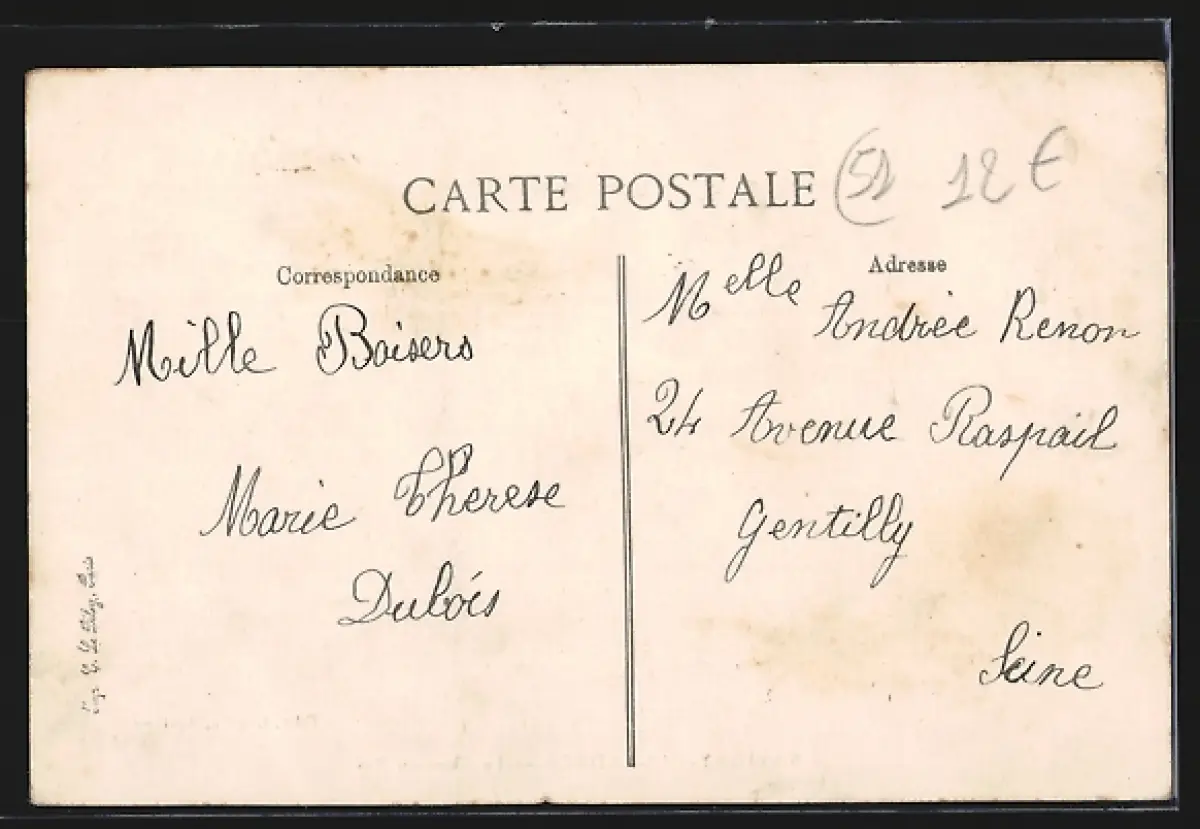 CARTE POSTALE
(51 12 €
Correspondance
Mille Baisers
Marie Therese
Dubois
Adresse
Melle Andrée Renon
24 Avenue Raspail
Gentilly
Seine
Imp. E. Le Deley, Paris